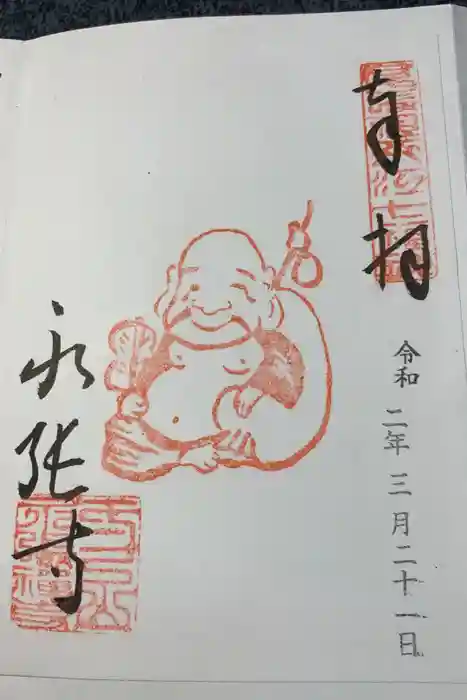 奉拝
令和二年三月二十一日
永張寺